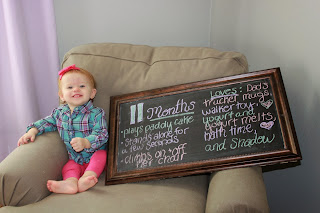 11 Months
• plays paddy cake
• Stands alone for
a few seconds
• climbs on + off
her chair
Loves: Dad's
trucker mugs,
walker toy,
yogurt and
yogurt melts,
bath time
and Shadow